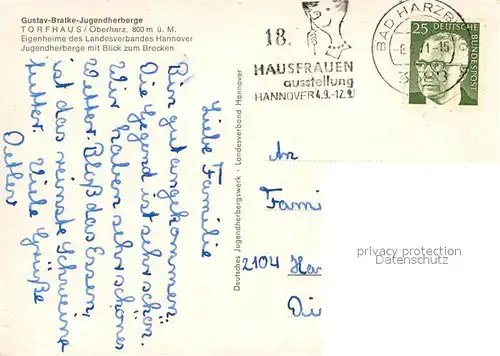 Gustav-Bratke-Jugendherberge
TORFHAUS / Oberharz, 800 m ü. M.
Eigenheime des Landesverbandes Hannover
Jugendherberge mit Blick zum Brocken
Liebe Familie
Bin gut angekommen
Die Gegend ist sehr schön.
Wir haben sehr schönes
Wetter. Bloß das Essen,
ist das reinste Schweine
futter. Viele Grüße
Detlev
Deutsches Jugendherbergswerk - Landesverband Hannover
18.
HAUSFRAUEN
ausstellung
HANNOVER 4.9.-12.9.
BAD HARZB
25
DEUTSCHE
BUNDESPOST
An
Fami
2104 Ha
privacy protection
Datenschutz